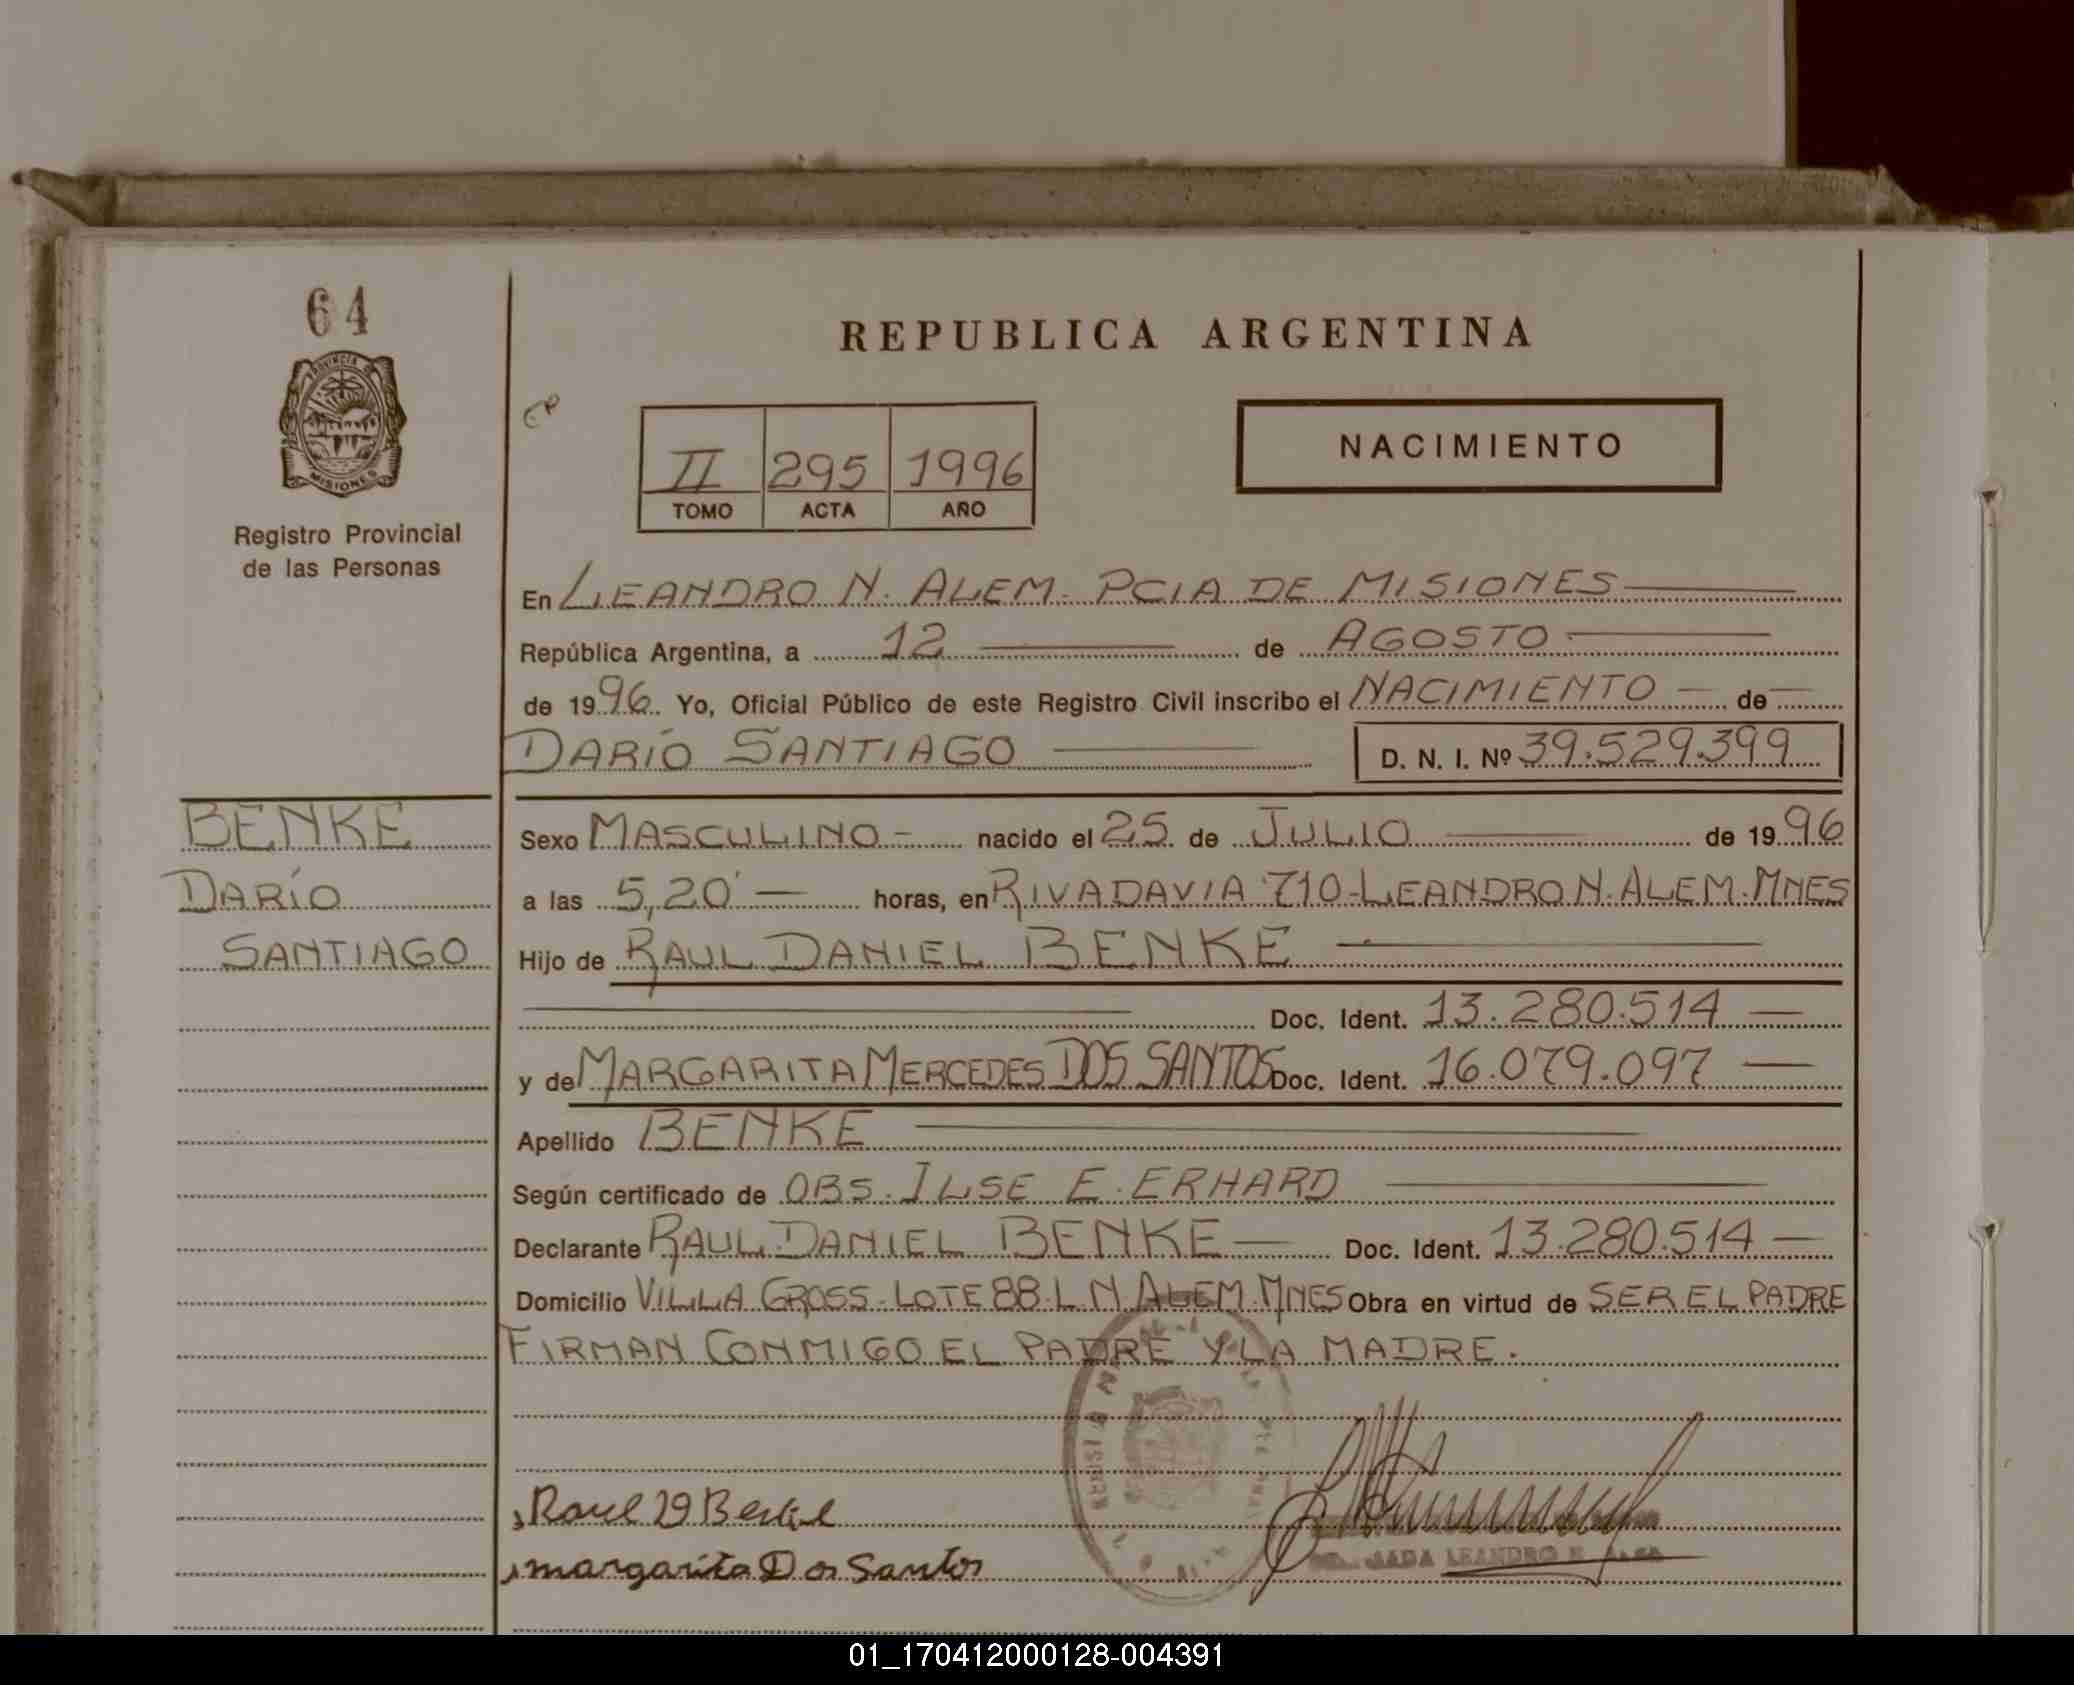 64
PROVINCIA DE
MISIONES
Registro Provincial
de las Personas
BENKE
DARÍO
SANTIAGO
REPUBLICA ARGENTINA
II 295 1996
TOMO ACTA AÑO
NACIMIENTO
En LEANDRO N. ALEM. PCIA DE MISIONES
República Argentina, a 12 de AGOSTO
de 1996. Yo, Oficial Público de este Registro Civil inscribo el NACIMIENTO de
DARÍO SANTIAGO D. N. I. Nº 39.529.399
Sexo MASCULINO - nacido el 25 de JULIO de 1996
a las 5,20' horas, en RIVADAVIA 710-LEANDRO N. ALEM. MNES
Hijo de RAUL DANIEL BENKE
Doc. Ident. 13.280.514
y de MARGARITA MERCEDES DOS SANTOS Doc. Ident. 16.079.097
Apellido BENKE
Según certificado de OBS. ILSE E. ERHARD
Declarante RAUL DANIEL BENKE Doc. Ident. 13.280.514
Domicilio VILLA GROSS-LOTE 88-L N ALEM. MNES Obra en virtud de SER EL PADRE
FIRMAN CONMIGO EL PADRE Y LA MADRE.
Raul
margarita Dos Santos
LEANDRO N. ALEM
01_170412000128-004391